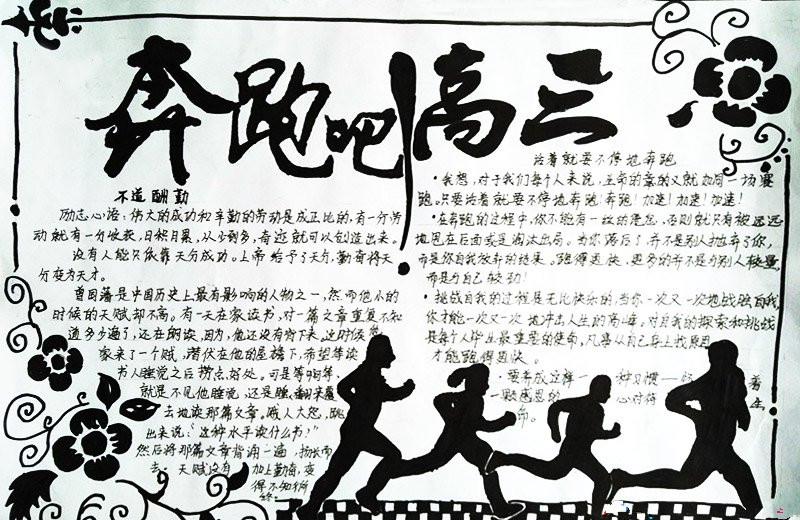 奔跑吧高三
不道酬勤
励志心语：伟大的成功和辛勤的劳动是成正比的，有一分劳
动就有一分收获，日积月累，从少到多，奇迹就可以创造出来。
没有人能只依靠天分成功。上帝给予了天分，勤奋将天
分变为天才。
曾国藩是中国历史上最有影响的人物之一，然而他小的
时候的天赋却不高。有一天在家读书，对一篇文章重复不知
道多少遍了，还在朗读，因为，他还没有背下来。这时候他
家来了一个贼，潜伏在他的屋檐下，希望等读
书人睡觉之后捞点好处。可是等啊等，
就是不见他睡觉，还是翻来覆
去地读那篇文章。贼人大怒，跳
出来说：“这种水平读什么书？”
然后将那篇文章背诵一遍，扬长而
去。天赋没有 加上勤奋，变
得不知所
终
活着就要不停地奔跑
·我想，对于我们每个人来说，生命的意义就如同一场赛
跑。只要活着就要不停地奔跑，奔跑！加速！加速！加速！
·在奔跑的过程中，你不能有一丝的倦怠，否则就只有被远远
地甩在后面或是淘汰出局。当你落后了，并不是别人抛弃了你，
而是你自我放弃的结果。跑得更快，更多的并不是与别人较量，
而是与自己较劲！
·挑战自我的过程是无比快乐的，当你一次又一次地战胜自我，
你才能一次又一次地冲击人生的高峰。对自我的探索和挑战
是每个人毕生最重要的使命，凡事从自己身上找原因
才能跑得更快。
·要养成这样一种习惯
一颗感恩的心对待
命。